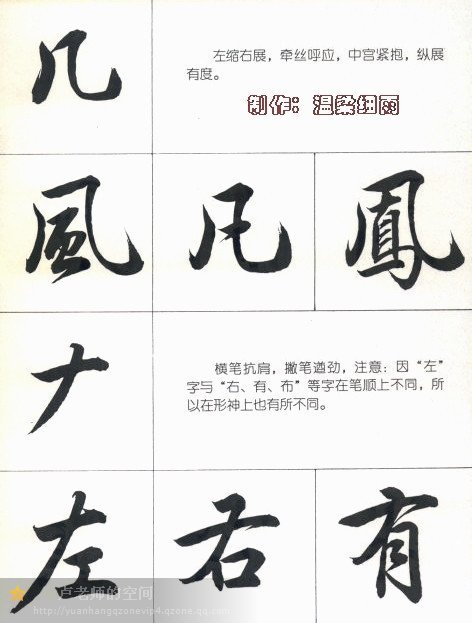 几
左缩右展，牵丝呼应，中宫紧抱，纵展
有度。
制作：温柔细丽
風 凡 鳳
𠂇
横笔抗肩，撇笔遒劲，注意：因“左”
字与“右、有、布”等字在笔顺上不同，所
以在形神上也有所不同。
左 右 有
卢老师的空间
http://yuanhangqzonevip4.qzone.qq.com